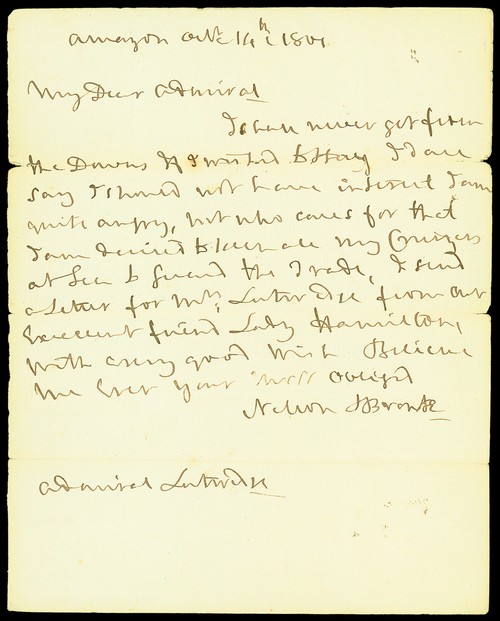 Amazon Octr: 14th: 1801
My Dear Admiral
I shall never get from
the Downs If I wished to stay I dare
say I should not have interest I am
quite angry, but who cares for that
I am desired to keep all my Cruizers
at Sea to Guard the Trade, I send
a Letter for Mrs: Lutwidge from our
Excellent friend Lady Hamilton,
With every good Wish Believe
me Ever your Most Obliged
Nelson & Bronte
Admiral Lutwidge